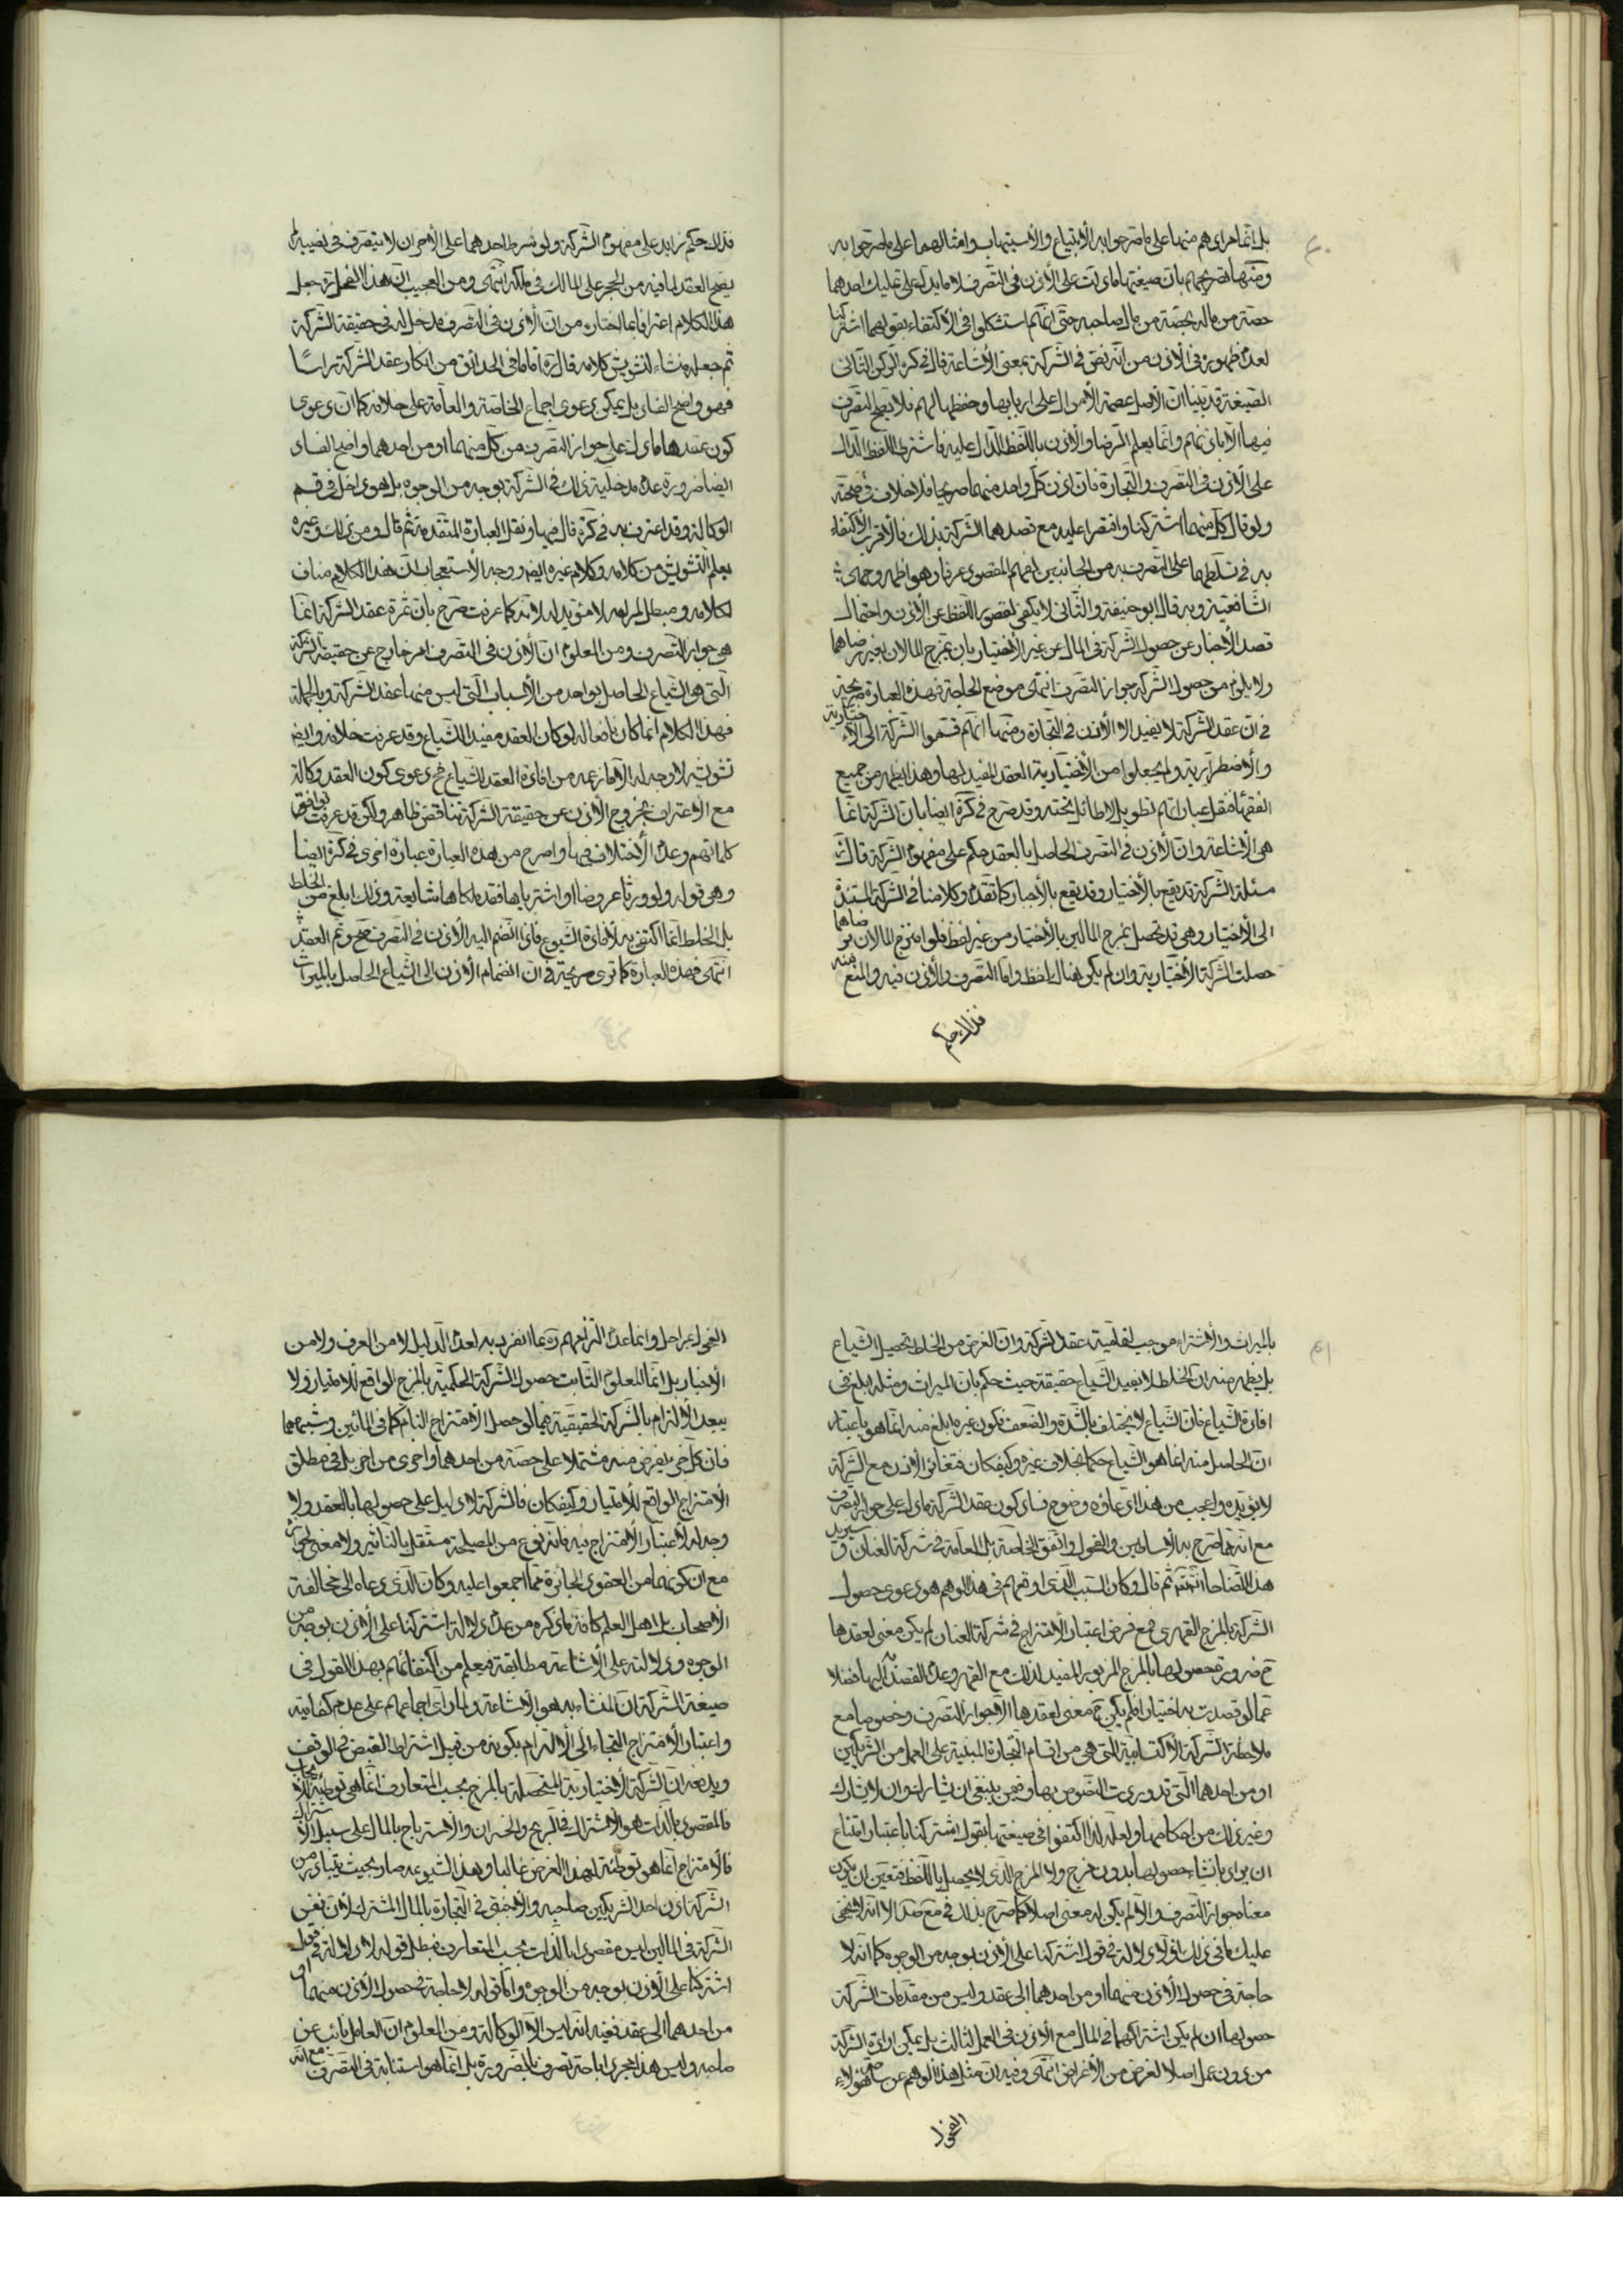 بل انما مرادهم منها على ما صرحوا به الابتياع والاستيهاب وامثالهما على ما صرحوا به
ومنها تصريحهم بان صيغتها ما دلت على الاذن في التصرف لا ما يدل على تمليك احدهما
حصة من ماله بحصة من مال صاحبه حتى انهم استشكلوا في الاكتفاء بقولهما اشتركنا
لعدم ظهوره في الاذن من انه نص في الشركة بمعنى الاشاعة قال في كره الركن الثاني
الصيغة قد بينا ان الاصل عصمة الاموال على اربابها وحفظها لهم فلا يصح التصرف
فيها الا باذنهم وانما يعلم الرضا والاذن باللفظ الدال عليه فاشترط اللفظ الدال
على الاذن في التصرف والتجارة فان اذن كل واحد منهما صريحا فلا خلاف في صحته
ولو قال كل منهما اشتركنا واقتصرا عليه مع قصدهما الشركة بذلك فالاقرب الاكتفاء
به في تسلطهما على التصرف به من الجانبين لفهم المقصود عرفا وهو اظهر وجهي
الشافعية وبه قال ابو حنيفة والثاني لا يكفي لقصور اللفظ عن الاذن واحتمال
قصد الاخبار عن حصول الشركة في المال من غير الاختيار بان يمزج المالان بغير رضاهما
ولا يلزم من حصول الشركة جواز التصرف انتهى موضع الحاجة فهذه العبارة صريحة
في ان عقد الشركة لا يفيد الا الاذن في التجارة ومنها انهم قسموا الشركة الى الاختيارية
والاضطرارية ولم يجعلوا من الاختيارية العقد المفيد لها وهذا يظهر من جميع
الفقهاء فنقل عباراتهم تطويل لا طائل تحته وقد صرح في كره ايضا بان الشركة انما
هي الاشاعة وان الاذن في التصرف الحاصل بالعقد حكم على مفهوم الشركة قال
مسئلة الشركة قد يقع بالاختيار وقد يقع بالاجبار كما تقدم وكلامنا في الشركة المستندة
الى الاختيار وهي قد تحصل بمزج المالين بالاختيار من غير لفظ فلو امتزج المالان برضاهما
حصلت الشركة الاختيارية وان لم يكن هناك لفظ واما التصرف والاذن فيه والمنع منه
فذلك حكم
فذلك حكم زايد على مفهوم الشركة ولو شرط احدهما على الاخر ان لا يتصرف في نصيبه لم
يصح العقد لما فيه من الحجر على المالك في ملكه انتهى ومن العجيب ان هذا الفحل ره جعل
هذا الكلام اعترافا بما اختاره من ان الاذن في التصرف لا مدخل له في حقيقة الشركة
ثم جعله منشاء لتشويش كلامه قال ره اما ما في الحدائق من انكار عقد الشركة راسا
فهو واضح الفساد بل يمكن دعوى اجماع الخاصة والعامة على خلافه كما ان دعوى
كون عقدها ما دل على جواز التصرف من كل منهما او من احدهما واضح الفساد
ايضا ضرورة عدم مدخلية ذلك في الشركة بوجه من الوجوه بل هو داخل في قسم
الوكالة وقد اعترف به في كره قال فيها ونقل العبارة المتقدمة ثم قال ومن ذلك وغيره
يعلم التشويش من كلامه وكلام غيره ايضا ووجه الاستعجاب ان هذا الكلام مناف
لكلامه ومبطل لمرامه لا مؤيد له لانه كما عرفت صرح بان ثمرة عقد الشركة انما
هي جواز التصرف ومن المعلوم ان الاذن في التصرف امر خارج عن حقيقة الشركة
التي هو الشياع الحاصل بواحد من الاسباب التي ليس منها عقد الشركة وبالجملة
فهذا الكلام انما كان نافعا له لو كان العقد مفيدا للشياع وقد عرفت خلافه وايضا
تشويشه لا وجه له الا ما زعمه من افادة العقد الشياع فح دعوى كون العقد وكالة
مع الاعتراف بخروج الاذن عن حقيقة الشركة تناقض ظاهر ولكن قد عرفت توافق
كلماتهم وعدم الاختلاف فيها واصرح من هذه العبارة عبارة اخرى في كره ايضا
وهي قوله ولو ورثا عروضا او اشترياها فقد ملكاها شايعة وذلك ابلغ من الخلط
بل الخلط انما اكتفي به لافادة الشيوع فاذا انضم اليه الاذن في التصرف صح وتم العقد
انتهى فهذه العبارة كما ترى صريحة في ان انضمام الاذن الى الشياع الحاصل بالميراث
بالميراث والاشتراء موجب لفعلية عقد الشركة وان الغرض من الخلط تحصيل الشياع
بل يظهر منه ان الخلط لا يفيد الشياع حقيقة حيث حكم بان الميراث ومثله ابلغ في
افادة الشياع فان الشياع لا يختلف بالشدة والضعف فكون غيره ابلغ منه انما هو باعتبار
ان الحاصل منه انما هو الشياع حكما بخلاف غيره وكيف كان فتغاير الاذن مع الشركة
لا يؤيده واعجب من هذا ادعاؤه وضوح فساد كون عقد الشركة ما دل على جواز التصرف
مع انه مما صرح به الاساطين والفحول واتفق الخاصة بل العامة في شركة العنان وسيزيد
هذا اتضاحا ثم قال وكان السبب الذي اوقعهم في هذا الوهم هو دعوى حصول
الشركة بالمزج القهري فمع فرض اعتبار الامتزاج في شركة العنان لم يكن معنى لعقدها
ح ضرورة حصولها بالمزج المزبور المفيد لذلك مع القهر وعدم القصد اليها فضلا
عما لو قصدت به اختيارا فلم يكن ح معنى لعقدها الا جواز التصرف وخصوصا مع
ملاحظة الشركة الاكتسابية التي هي من اقسام التجارة المبنية على العمل من الشريكين
او من احدهما التي قد وردت النصوص بها وفيمن ينبغي ان يشارك وان لا يشارك
وغير ذلك من احكامها ولعله لذا اكتفوا في صيغتها بقول اشتركنا باعتبار امتناع
ان يراد بانشاء حصولها بدون مزج ولا المزج الذي لا يحصل باللفظ فتعين ان يكون
معناه جواز التصرف والا لم يكن له معنى اصلا كما صرح بذلك في مع صد الا انه لا يخفى
عليك ما في ذلك اذ لا دلالة في قول اشتركنا على الاذن بوجه من الوجوه كما انه لا
حاجة في حصول الاذن منهما او من احدهما الى عقد وليس من مقدمات الشركة
حصولها ان لم يكن اشتراكهما في المال مع الاذن في العمل لثالث بل يمكن ارادة الشركة
من دون عمل اصلا لغرض من الاغراض انتهى وفيه ان مثل هذا الوهم عن ساحة هؤلاء
الفحول
الفحول بمراحل وانما عدم التزامهم ره بما انفرد به لعدم الدليل لا من العرف ولا من
الاخبار بل انما المعلوم الثابت حصول الشركة الحكمية بالمزج الرافع للامتياز ولا
يبعد الالتزام بالشركة الحقيقية فيما لو حصل الامتزاج التام كما في المائين وشبههما
فان كل جزء يفرض منه مشتملا على حصة من احدهما واخرى من اخر بل في مطلق
الامتزاج الرافع للامتياز وكيف كان فالشركة لا دليل على حصولها بالعقد ولا
وجه لاعتبار الامتزاج فيه فانه نوع من المصلحة مستقل بالتأثير ولا معنى لجوازه
مع ان كونها من العقود الجائزة مما اجمعوا عليه وكان الذي دعاه الى مخالفة
الاصحاب بل اهل العلم كافة ما ذكره من عدم دلالة اشتركنا على الاذن بوجه من
الوجوه ودلالته على الاشاعة مطابقة فيعلم من اكتفائهم بهذا القول في
صيغة الشركة ان المنشاء به هو الاشاعة ولما راى اجماعهم على عدم كفايته
واعتبار الامتزاج التجاء الى الالتزام بكونه من قبيل اشتراط القبض في الوقف
ويدفعه ان الشركة الاختيارية المتحصلة بالمزج بحسب المتعارف انما هي توطئة للاتجار
فالمقصود بالذات هو الاشتراك في الربح والخسران والاسترباح بالمال على سبيل الاشتراك
فالامتزاج انما هو توطئة لهذا الغرض غالبا وهذا الشيوع صار بحيث يتبادر من
الشركة اذن احد الشريكين صاحبه والاجنبي في التجارة بالمال المشترك لان نفس
الشركة في المالين ليس مقصودا بالذات بحسب المتعارف فبطل قوله لا دلالة في قول
اشتركنا على الاذن بوجه من الوجوه واما قوله لا حاجة في حصول الاذن منهما او
من احدهما الى عقد ففيه انه ليس الا الوكالة ومن المعلوم ان العامل نائب عن
صاحبه وليس هذا بمجرد اباحة تصرف بالضرورة بل انما هو استنابة في التصرف مع انه